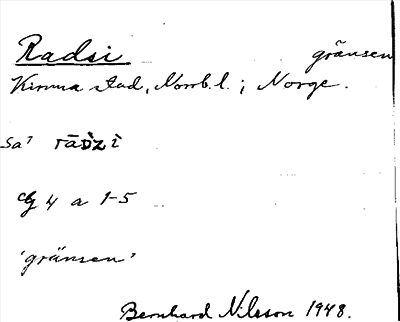 Radsi gränsen
Kiruna stad, Norrb. l. ; Norge.
Sa⁷ rād̀zì
4 a 1-5
'gränsen'
Bernhard Nilsson 1948.